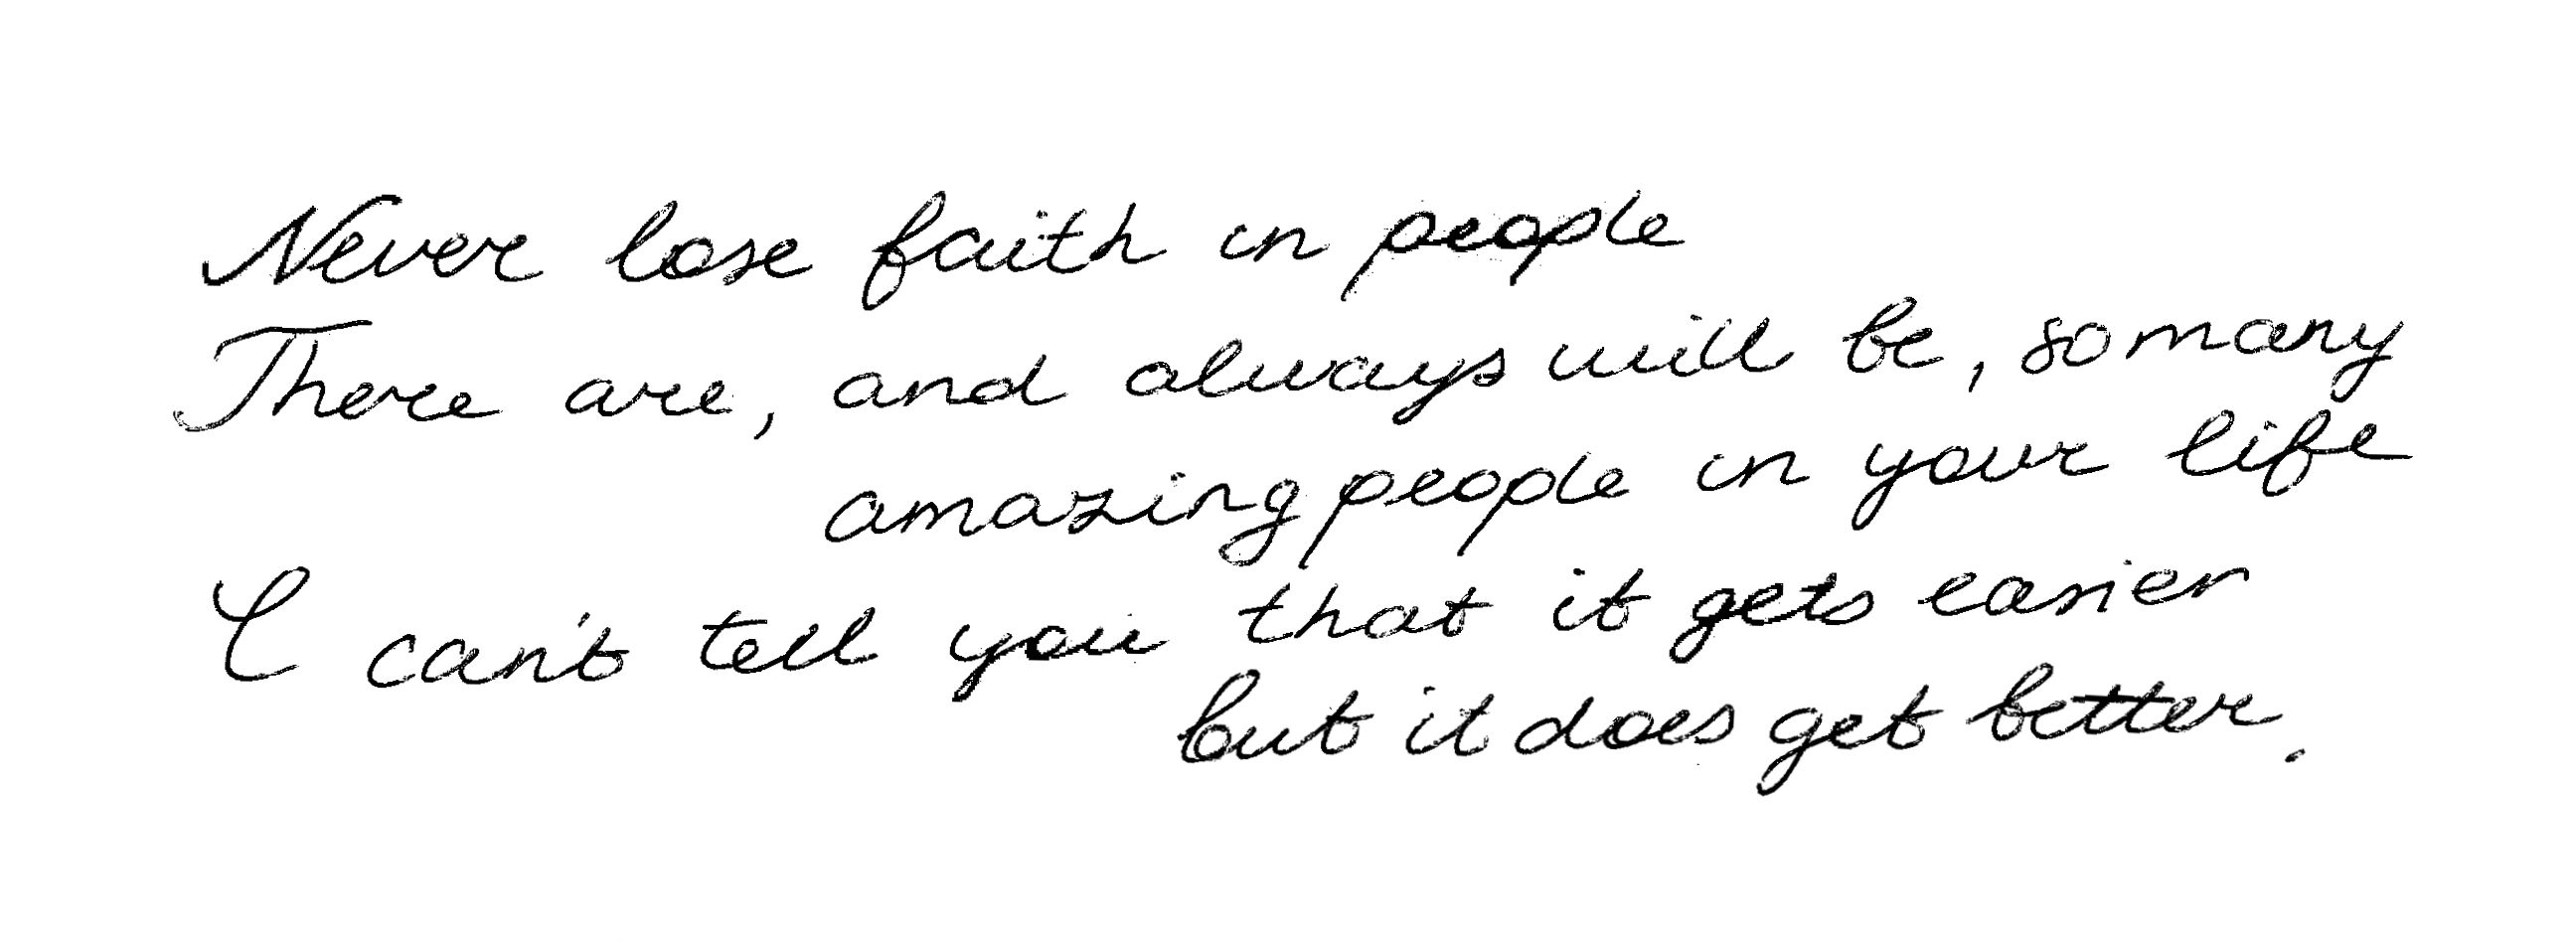 Never lose faith in people
There are, and always will be, so many
amazing people in your life
I can't tell you that it gets easier
but it does get better.